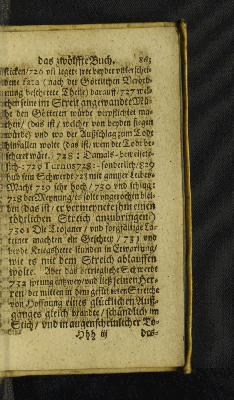 das zwölffte Buch. 863
schicken/726 uñ legete jhre beyder unterschied-
dene fata (nach der Göttlichen Verord-
nung beschehrete Theile) darauff/727 wel-
chen seine im Streit angewandte Mü-
he den Göttern würde verpflichtet ma-
chen/ (das ist/ welcher von beyden siegen
würde) und wo der Außschlag zum Tode
hinfallen wolte (das ist/ wem der Tod be-
scheret wäre. 728: Damals
sich: 729 Turnus 728:
hub sein Schwerdt 723 mit gantzer Leibes-
Macht 729 sehr hoch/ 730 und schlug:
728 der Meynung/ es solte ungerochen blei-
ben (das ist/ er vermeynete jhm einen
tödtlichen Streich anzubringen)
730: Die Trojaner/ und sorgfältige La-
teiner machten ein Geschrey/ 731 und
beyde Kriegsheere stunden in Erwartung/
wie es mit dem Streich ablauffen
wolte. Aber das betriegliche Schwerdt
732 sprung entzwey/ und ließ seinen Her-
ren/ der mitten in dem geführten Streiche
von Hoffnung eines glücklichen Auß-
ganges gleich brandte/ schändlich im
Stich/ und in augenscheinlicher To-
Hhh iij des-